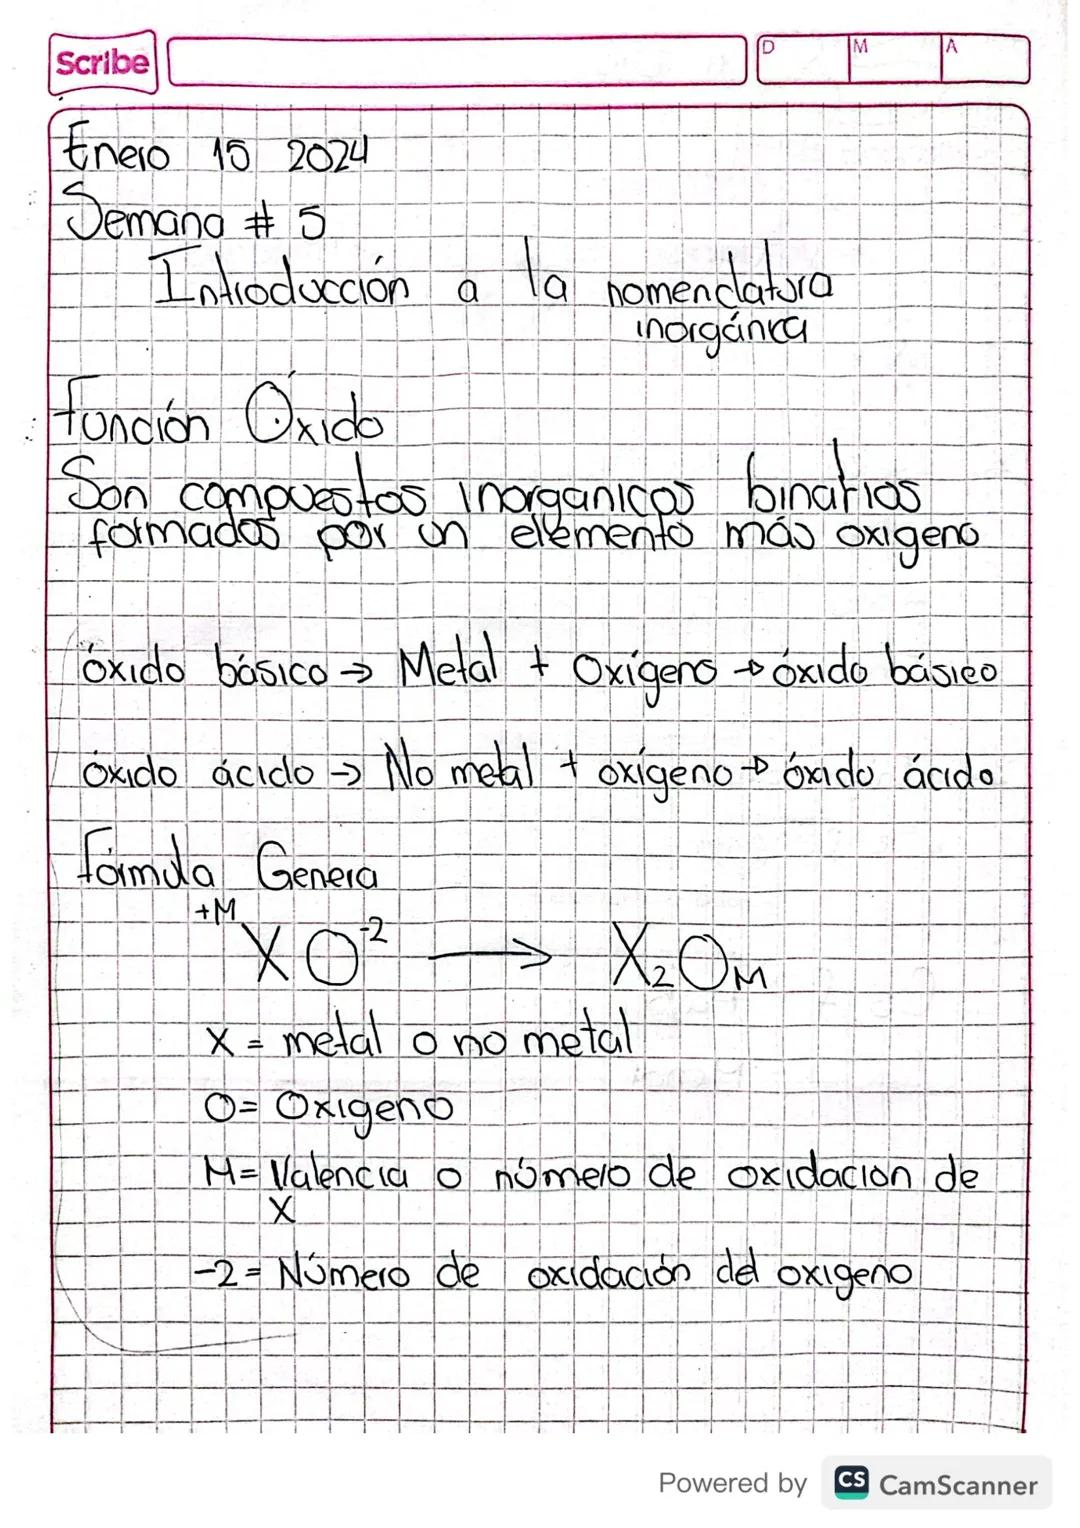 Scribe
D M A
Enero 15 2024
Semana # 5
Introducción a la nomenclatura
inorgánica
Función Óxido
Son compuestos inorganicos binarios
formados por un elemento más oxigeno
óxido básico → Metal + Oxígeno → óxido básico
óxido ácido → No metal + oxígeno → óxido ácido
Fórmula Genera
+M
X O⁻² → X₂Oᴍ
X = metal o no metal
O = Oxigeno
M = Valencia o número de oxidacion de
X
-2 = Número de oxidación del oxigeno
Powered by CS CamScanner